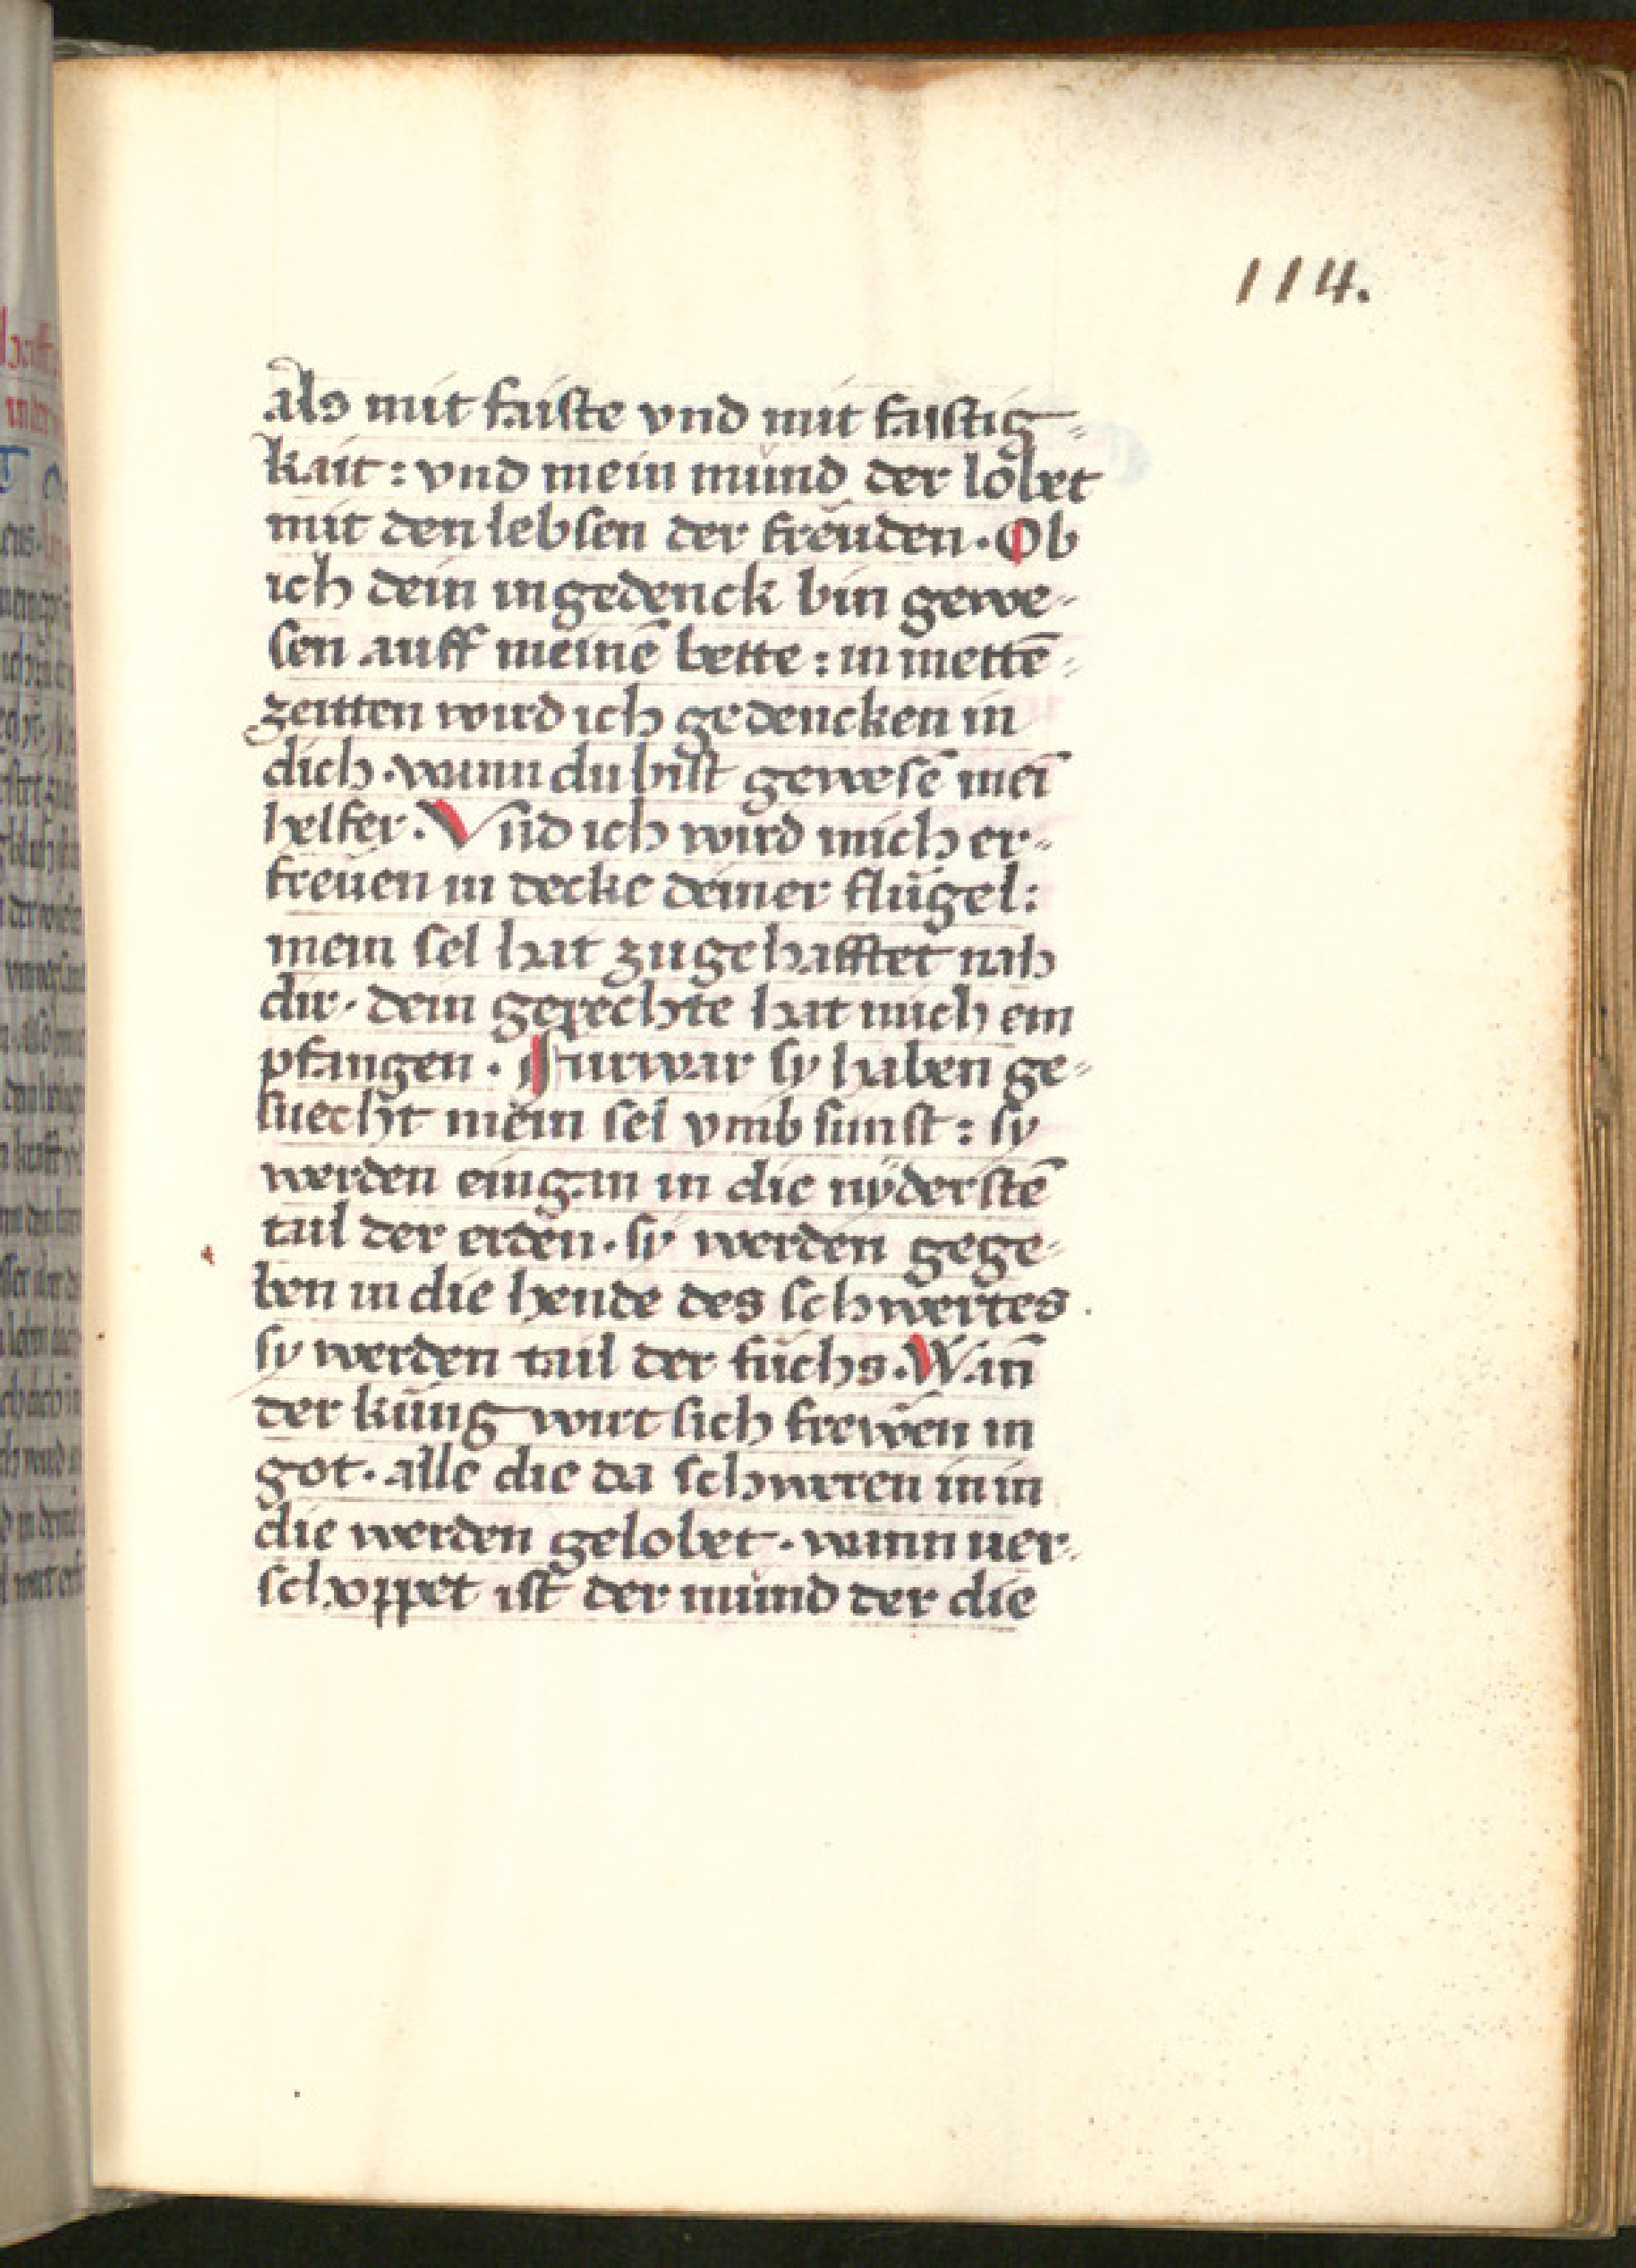 114.
als mit faiste vnd mit faistig⸗
kait : vnd mein mund der lobet
mit den lebsen der freuden · Ob
ich dein ingedenck bin gewe⸗
sen auff meinē bette : in mettē⸗
zeitten wird ich gedencken in
dich · wann du bist gewesē mei̅
helfer · Vnd ich wird mich er⸗
freuen in decke deiner flügel :
mein sel hat zugehafftet nah
dir · dein gerechte hat mich em
pfangen · Furwar sy haben ge⸗
suecht mein sel vmb sunst : sy
werden eingan in die nyderstē
tail der erden · sy werden gege⸗
ben in die hende des schwertes ·
sy werden tail der füchs · Wan̅
der küng wirt sich frewen in
got · alle die da schweren in in
die werden gelobet · wann uer⸗
schoppet ist der mund der die